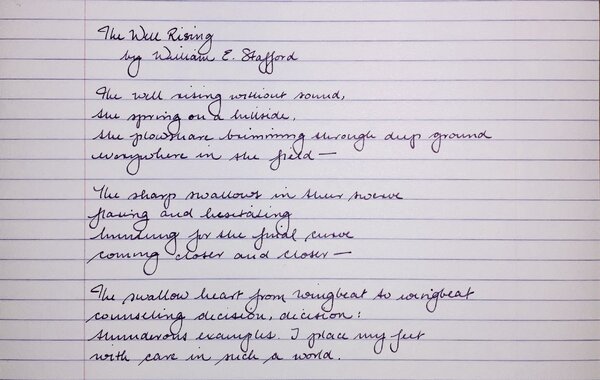 The Well Rising
by William E. Stafford
The well rising without sound,
the spring on a hillside,
the plowshare brimming through deep ground
everywhere in the field —
The sharp swallows in their swerve
flaring and hesitating
hunting for the final curve
coming closer and closer —
The swallow heart from wingbeat to wingbeat
counseling decision, decision:
thunderous examples. I place my feet
with care in such a world.